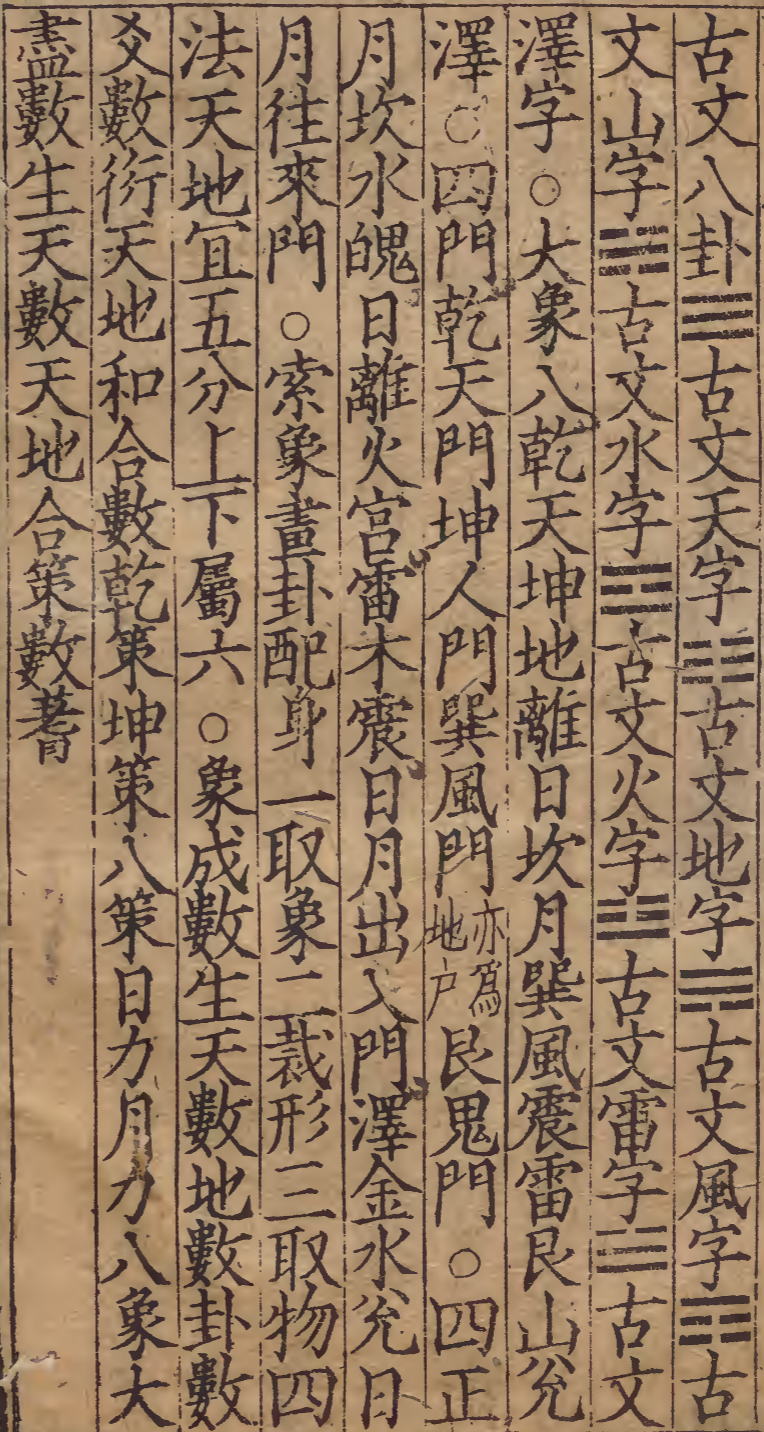 古文八卦☰古文天字☷古文地字☴古文風字☶古
文山字☵古文水字☲古文火字☳古文雷字☱古文
澤字○大象八乾天坤地離日坎月巽風震雷艮山兊
澤○四門乾天門坤人門巽風門亦爲地户艮鬼門○四正
月坎水魄日離火宫雷木震日月出入門澤金水兊日
月往來門○索象畫卦配身一取象二裁形三取物四
法天地冝五分上下屬六○象成數生天數地數卦數
爻數衍天地和合數乾策坤策八策日力月力八象大
盡數生天數天地合策數蓍